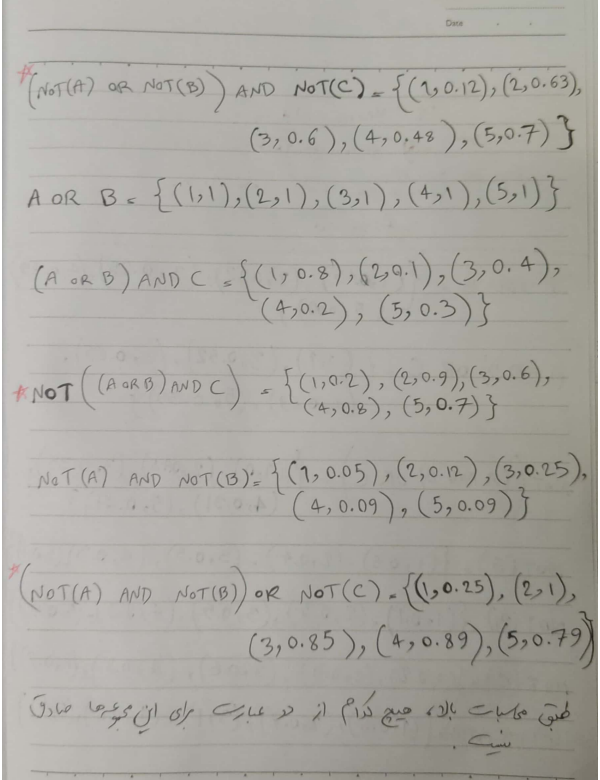 Date
* (NOT(A) OR NOT(B)) AND NOT(C) = {(1,0.12), (2,0.63),
(3,0.6), (4,0.48), (5,0.7)}
A OR B = {(1,1), (2,1), (3,1), (4,1), (5,1)}
(A OR B) AND C = {(1,0.8), (2,0.1), (3,0.4),
(4,0.2), (5,0.3)}
* NOT((A OR B) AND C) = {(1,0.2), (2,0.9), (3,0.6),
(4,0.8), (5,0.7)}
NOT(A) AND NOT(B) = {(1,0.05), (2,0.12), (3,0.25),
(4,0.09), (5,0.09)}
* (NOT(A) AND NOT(B)) OR NOT(C) = {(1,0.25), (2,1),
(3,0.85), (4,0.89), (5,0.79)}
طبق محاسبات بالا، هیچ کدام از دو عبارت برای این مجموعه‌ها صادق
نیست.